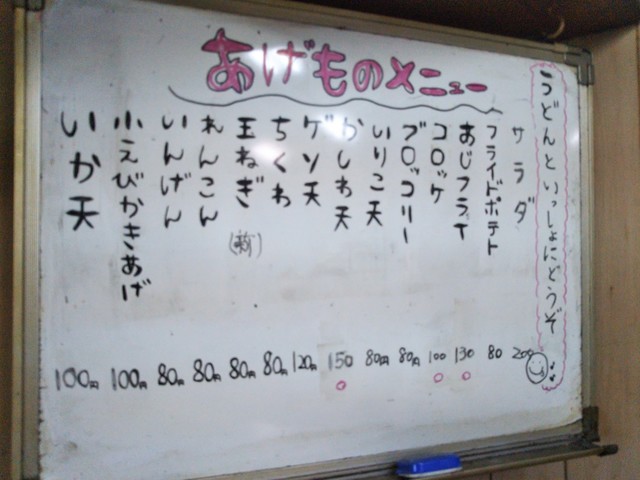 あげものメニュー
うどんといっしょにどうぞ
サラダ 200
フライドポテト 80
あじフライ 130
コロッケ 100
ブロッコリー 80円
いりこ天 80円
かしわ天 150
ゲソ天 120円
ちくわ 80円
玉ねぎ (新) 80円
れんこん 80円
いんげん 80円
小えびかきあげ 100円
いか天 100円